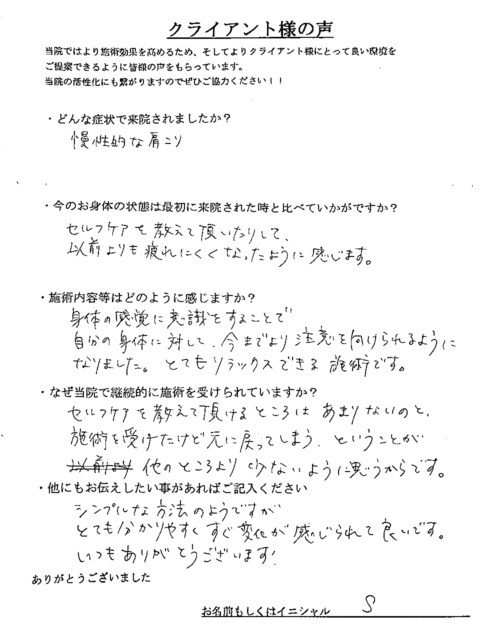 クライアント様の声
当院ではより施術効果を高めるため、そしてよりクライアント様にとって良い環境を
ご提案できるように皆様の声をもらっています。
当院の活性化にも繋がりますのでぜひご協力ください！！
・どんな症状で来院されましたか？
慢性的な肩こり
・今のお身体の状態は最初に来院された時と比べていかがですか？
セルフケアを教えて頂いたりして、
以前よりも疲れにくくなったように感じます。
・施術内容等はどのように感じますか？
身体の感覚に意識をすることで
自分の身体に対して、今までより注意を向けられるように
なりました。とてもリラックスできる施術です。
・なぜ当院で継続的に施術を受けられていますか？
セルフケアを教えて頂けるところはあまりないのと、
施術を受けたけど元に戻ってしまう、ということが
以前より 他のところより少ないように思うからです。
・他にもお伝えしたい事があればご記入ください
シンプルな方法のようですが
とても分かりやすくすぐ変化が感じられて良いです。
いつもありがとうございます!
ありがとうございました
お名前もしくはイニシャル S